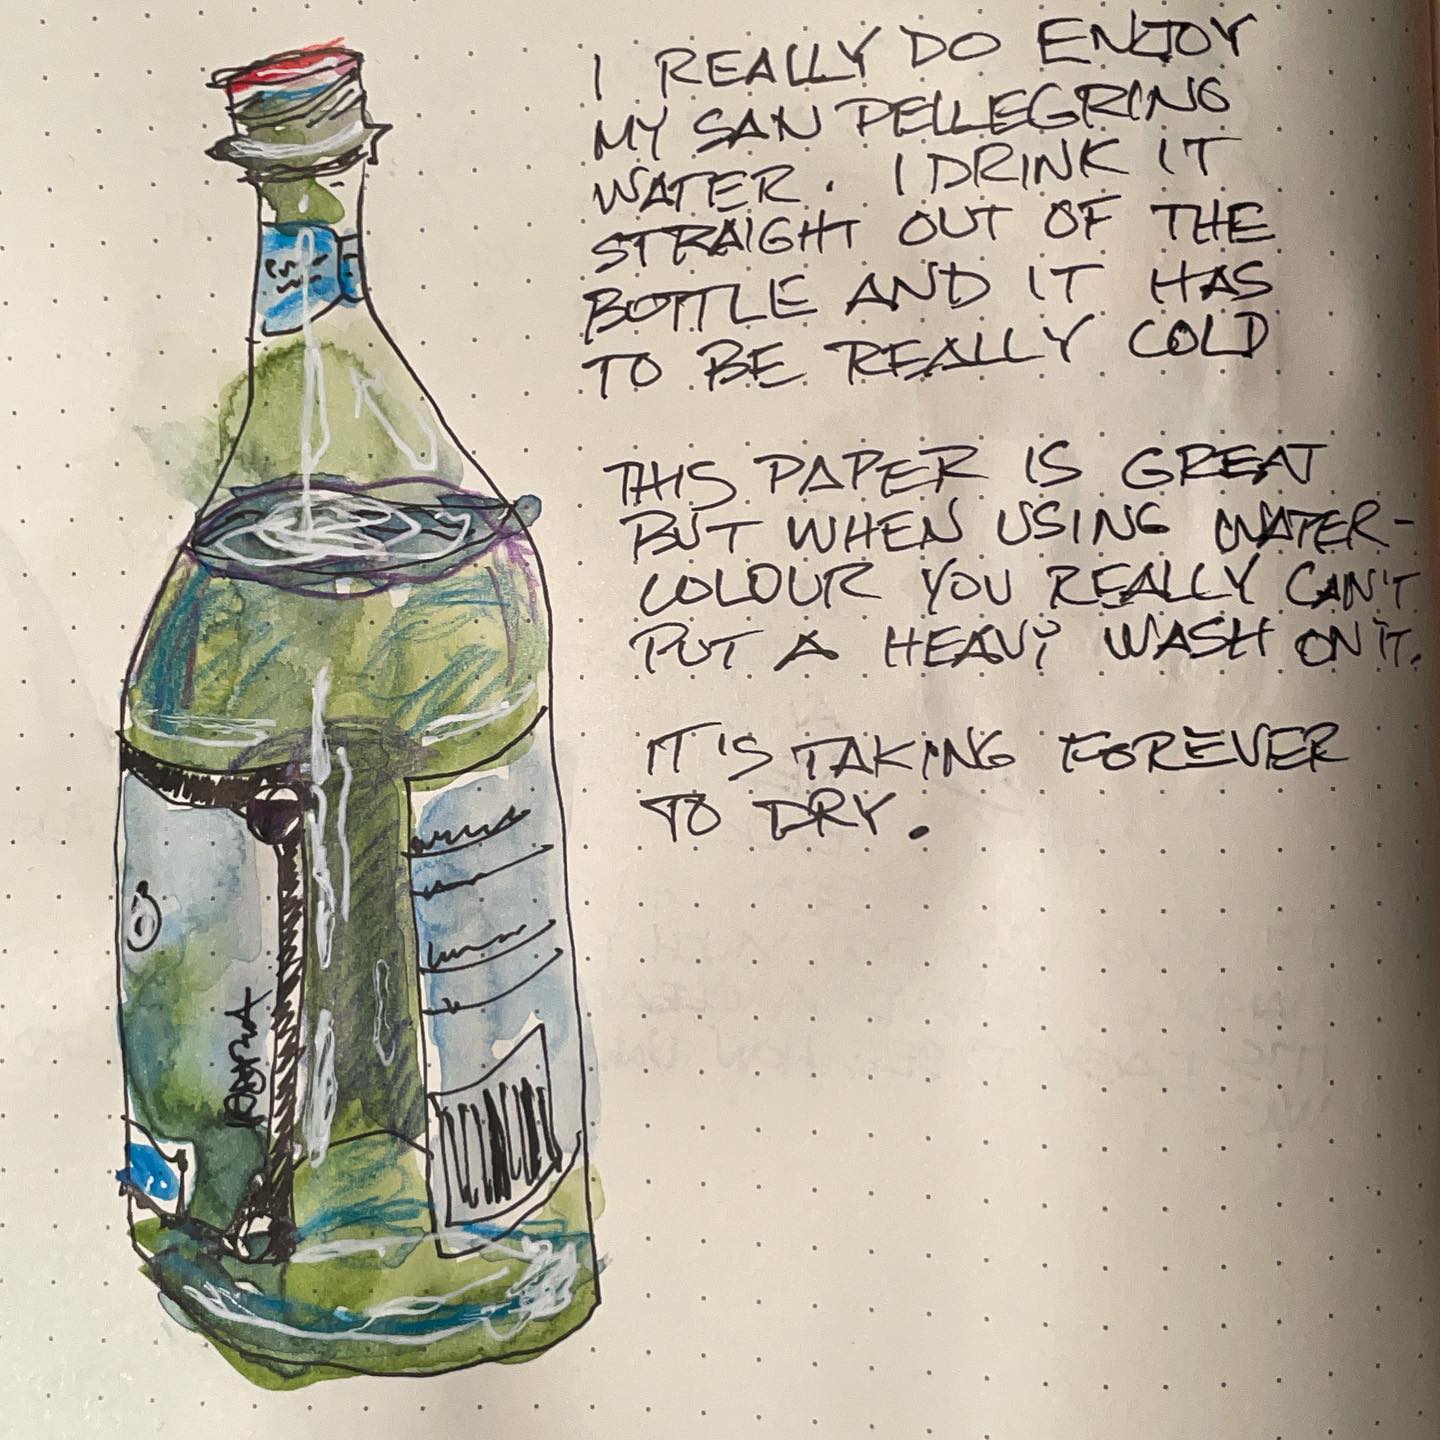 I REALLY DO ENJOY
MY SAN PELLEGRINO
WATER. I DRINK IT
STRAIGHT OUT OF THE
BOTTLE AND IT HAS
TO BE REALLY COLD
THIS PAPER IS GREAT
BUT WHEN USING WATER-
COLOUR YOU REALLY CAN'T
PUT A HEAVY WASH ON IT.
IT'S TAKING FOREVER
TO DRY.